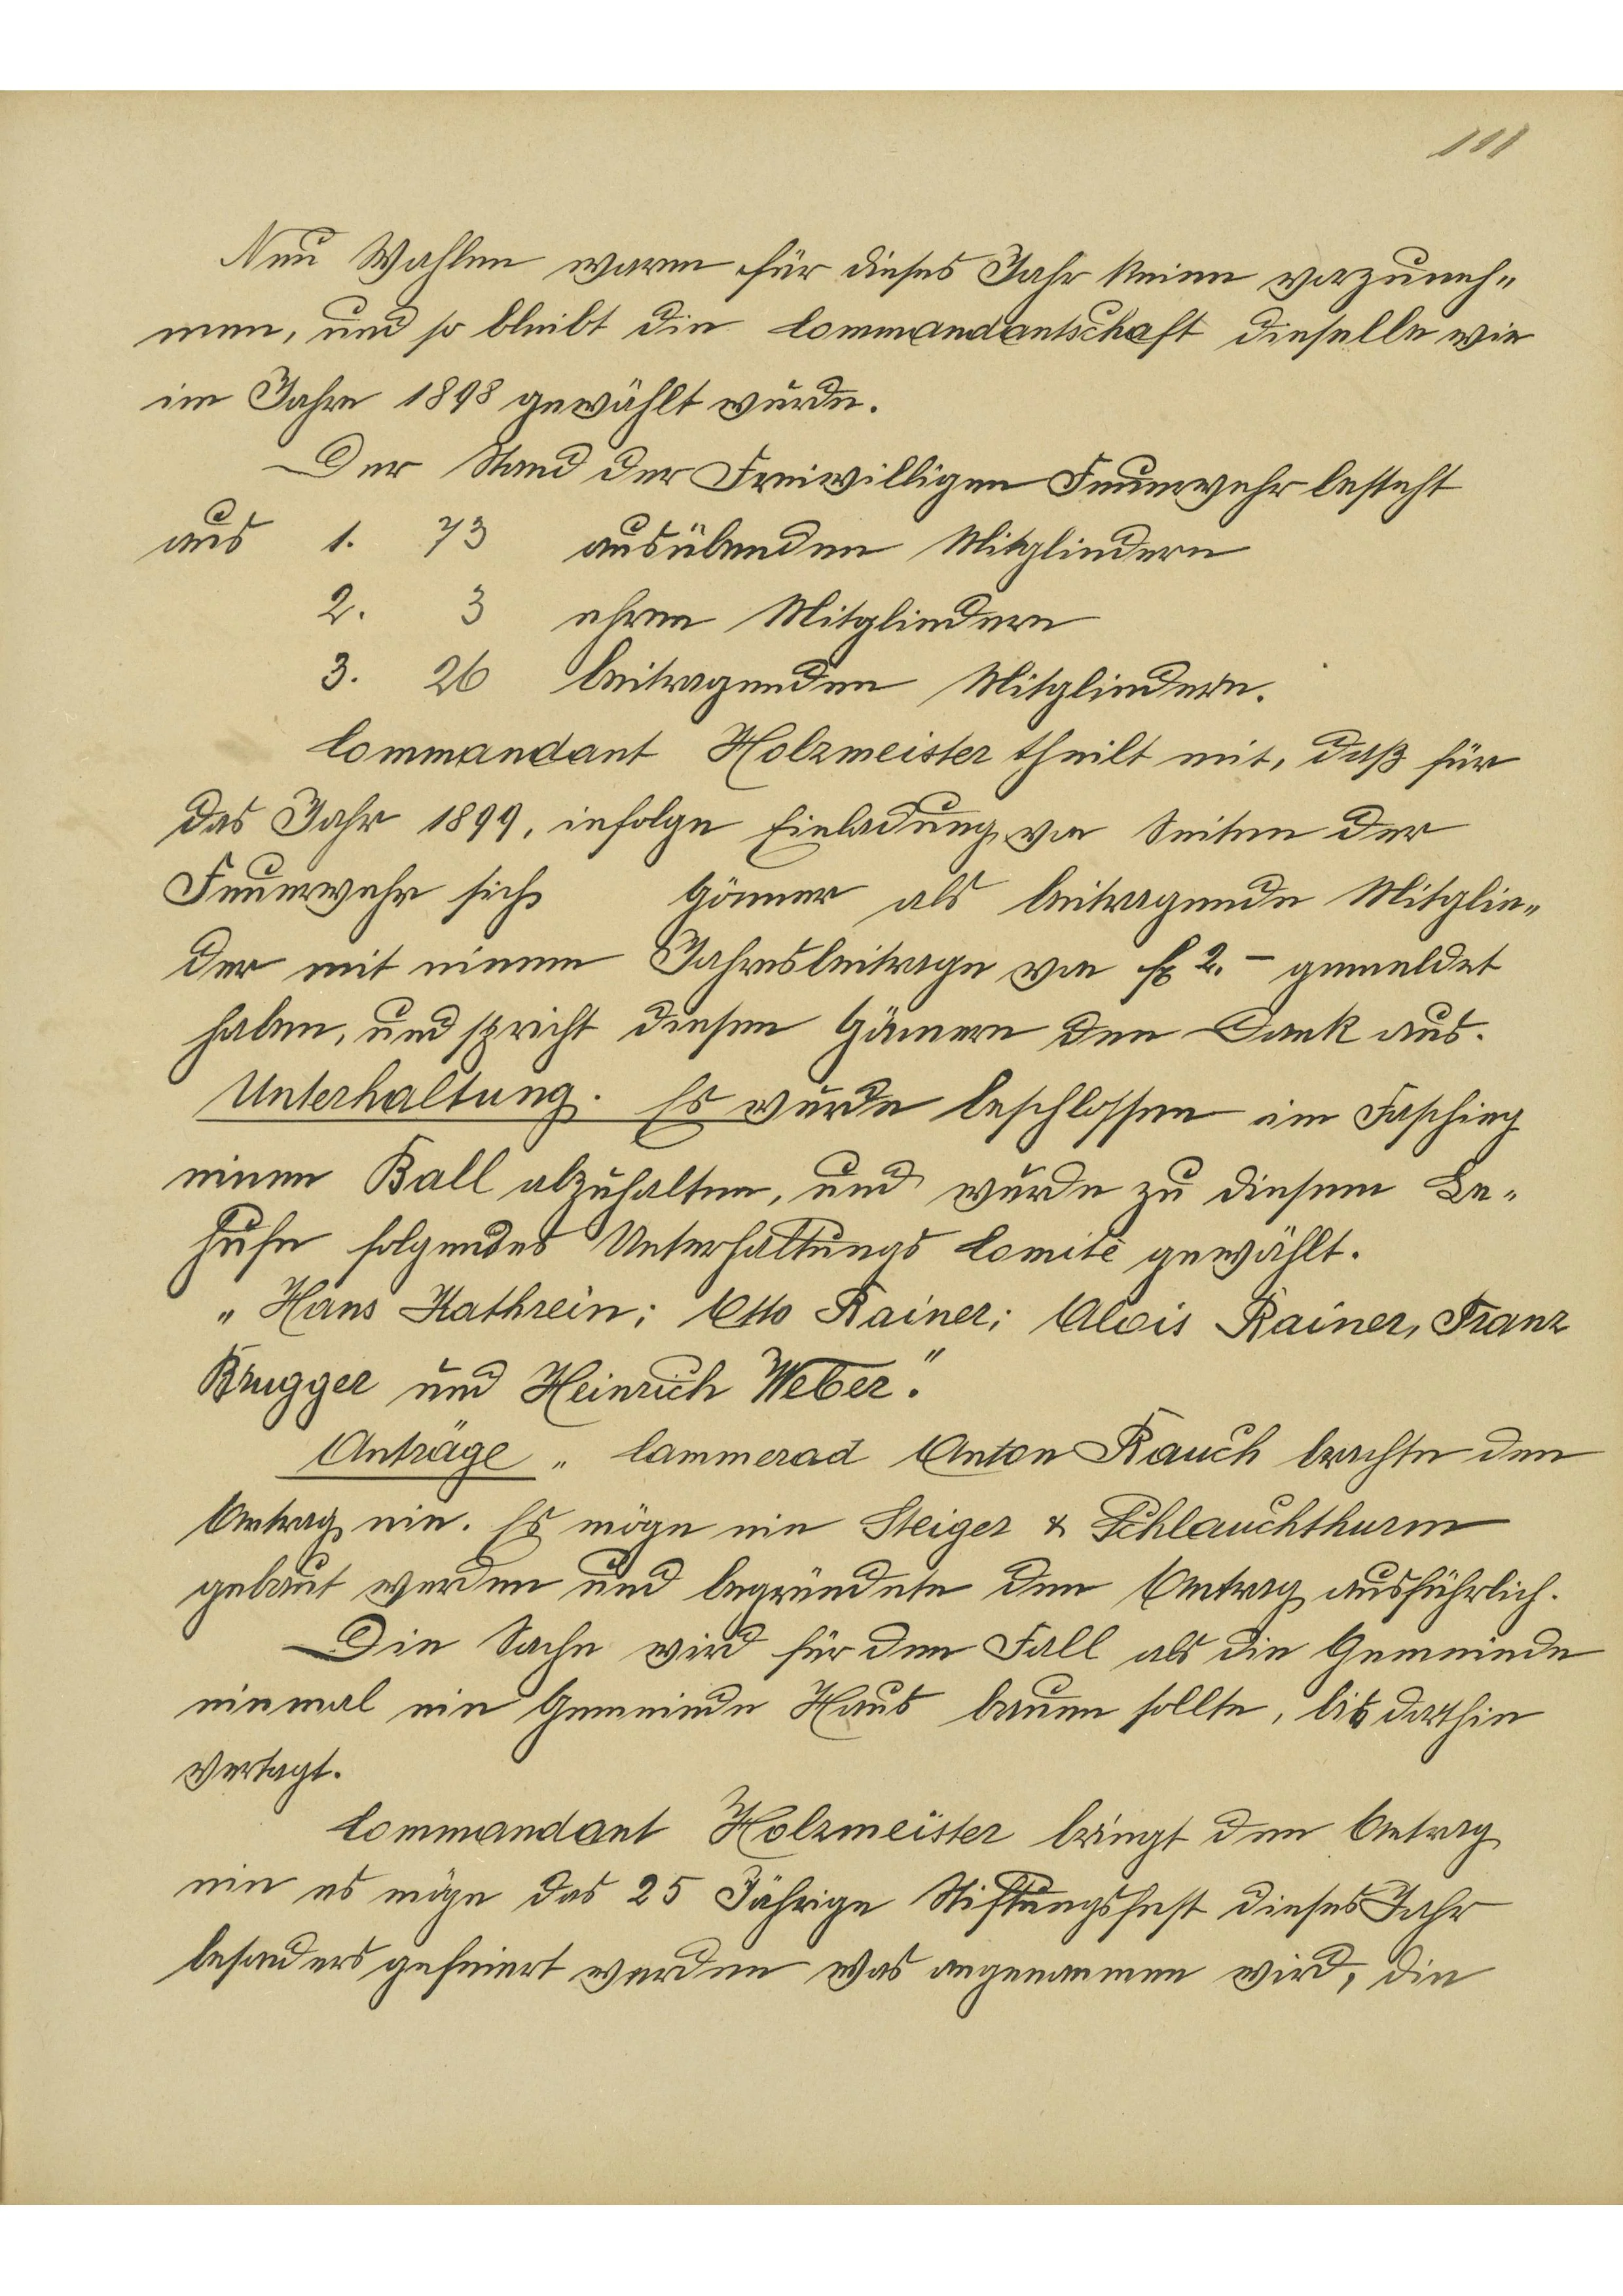 111
Neu Wahlen waren für dieses Jahr keine vorzuneh-
men, und so bleibt die Commandantschaft dieselbe wie
im Jahre 1898 gewählt wurde.
Der Stand der Freiwilligen Feuerwehr besteht
aus 1. 73 ausübenden Mitgliedern
2. 3 ehren Mitgliedern
3. 26 beitragenden Mitgliedern.
Commandant Holzmeister theilt mit, daß für
das Jahr 1899, infolge Einladung von Seiten der
Feuerwehr sich Gönner als beitragende Mitglie-
der mit einem Jahresbeitrage von fl 2.– gemeldet
haben, und spricht diesen Gönnern den Dank aus.
Unterhaltung. Es wurde beschlossen im Fasching
einen Ball abzuhalten, und wurde zu diesem Be-
hufe folgendes Unterhaltungs Comitè gewählt.
„Hans Kathrein; Otto Rainer; Alois Rainer, Franz
Brugger und Heinrich Weber".
Anträge „ Cammerad Anton Rauch brachte den
Antrag ein. Es möge ein Steiger & Schlauchthurm
gebaut werden und begründete den Antrag ausführlich.
Die Sache wird für den Fall als die Gemeinde
einmal ein Gemeinde Haus bauen sollte, bis dorthin
vertagt.
Commandant Holzmeister bringt den Antrag
ein es möge das 25 Jährige Stiftungsfest dieses Jahr
besonders gefeiert werden was angenommen wird, die